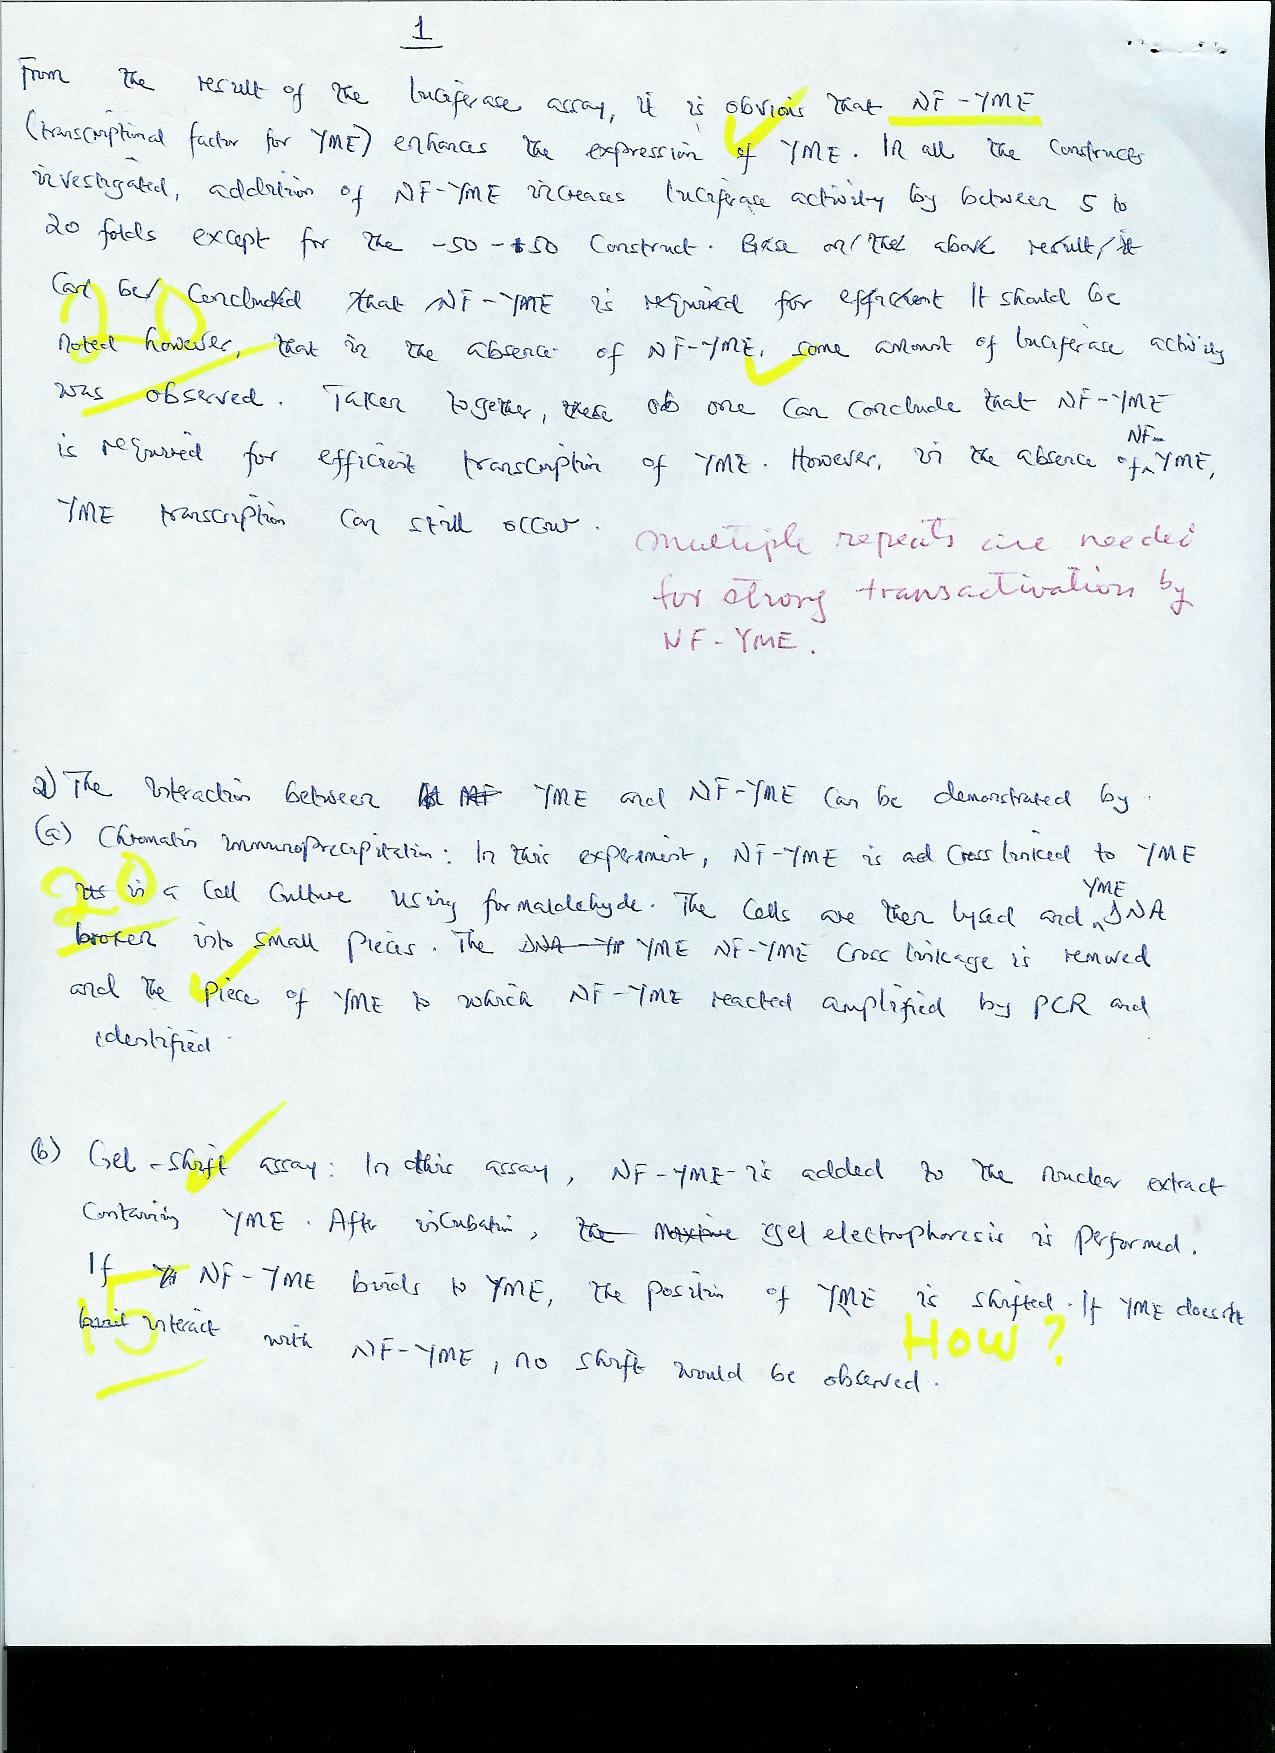 1
From the result of the luciferase assay, it is obvious that NF-YME
(transcriptional factor for YME) enhances the expression of YME. In all the constructs
investigated, addition of NF-YME increases luciferase activity by between 5 to
20 folds except for the -50-+50 construct. Base on the above result, it
can be concluded that NF-YME is required for efficient It should be
20
noted however, that in the absence of NF-YME, some amount of luciferase activity
was observed. Taken together, these one can conclude that NF-YME
is required for efficient transcription of YME. However, in the absence of NF-YME,
YME transcription can still occur.
Multiple repeats are needed
for strong transactivation by
NF-YME.
2) The interaction between YME and NF-YME can be demonstrated by
(a) Chromatin immunoprecipitation: In this experiment, NF-YME is ad cross linked to YME
20
in a cell culture using formaldehyde. The cells are then lysed and YME DNA
broken into small pieces. The DNA YME NF-YME cross linkage is removed
and the piece of YME to which NF-YME reacted amplified by PCR and
identified.
(b) Gel-shift assay: In this assay, NF-YME is added to the nuclear extract
containing YME. After incubation, the mixture gel electrophoresis is performed.
If NF-YME binds to YME, the position of YME is shifted. If YME doesn't
15
interact with NF-YME, no shift would be observed.
HOW?